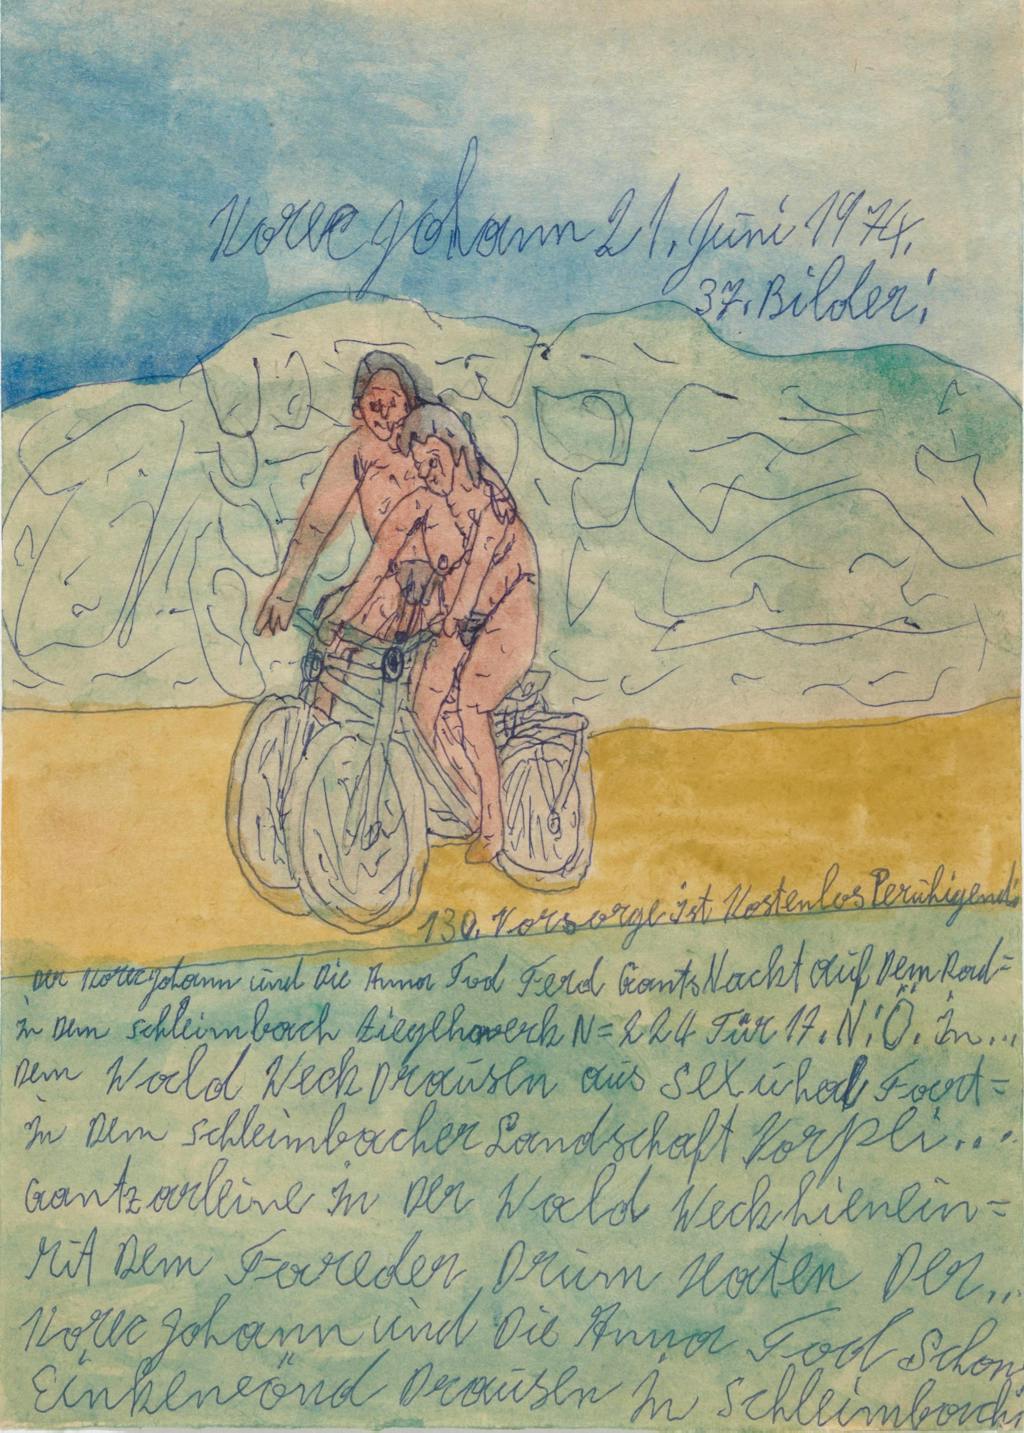 Korec Johann 21. Juni 1974.
37. Bilder!
130. Vorsorge ist Kostenlos Peruhigend!
Der Korec Johann und Die Anna Tod Ferd Gants Nackt auf Dem Rad=
in Dem Schleimbach Zieglhowerk N=224 Tür 17. N:Ö. in...
Dem Wald Weck Drausen aus Sexuhal Fart=
in Dem Schleimbacher Landschaft Korpli...
Gantz arleine in Der Wald Weckhienein=
Mit Dem Fareder Drum Haten Der...
Korec Johann und Die Anna Tod Schon
Einkeneönd Drausen in Schleimbach